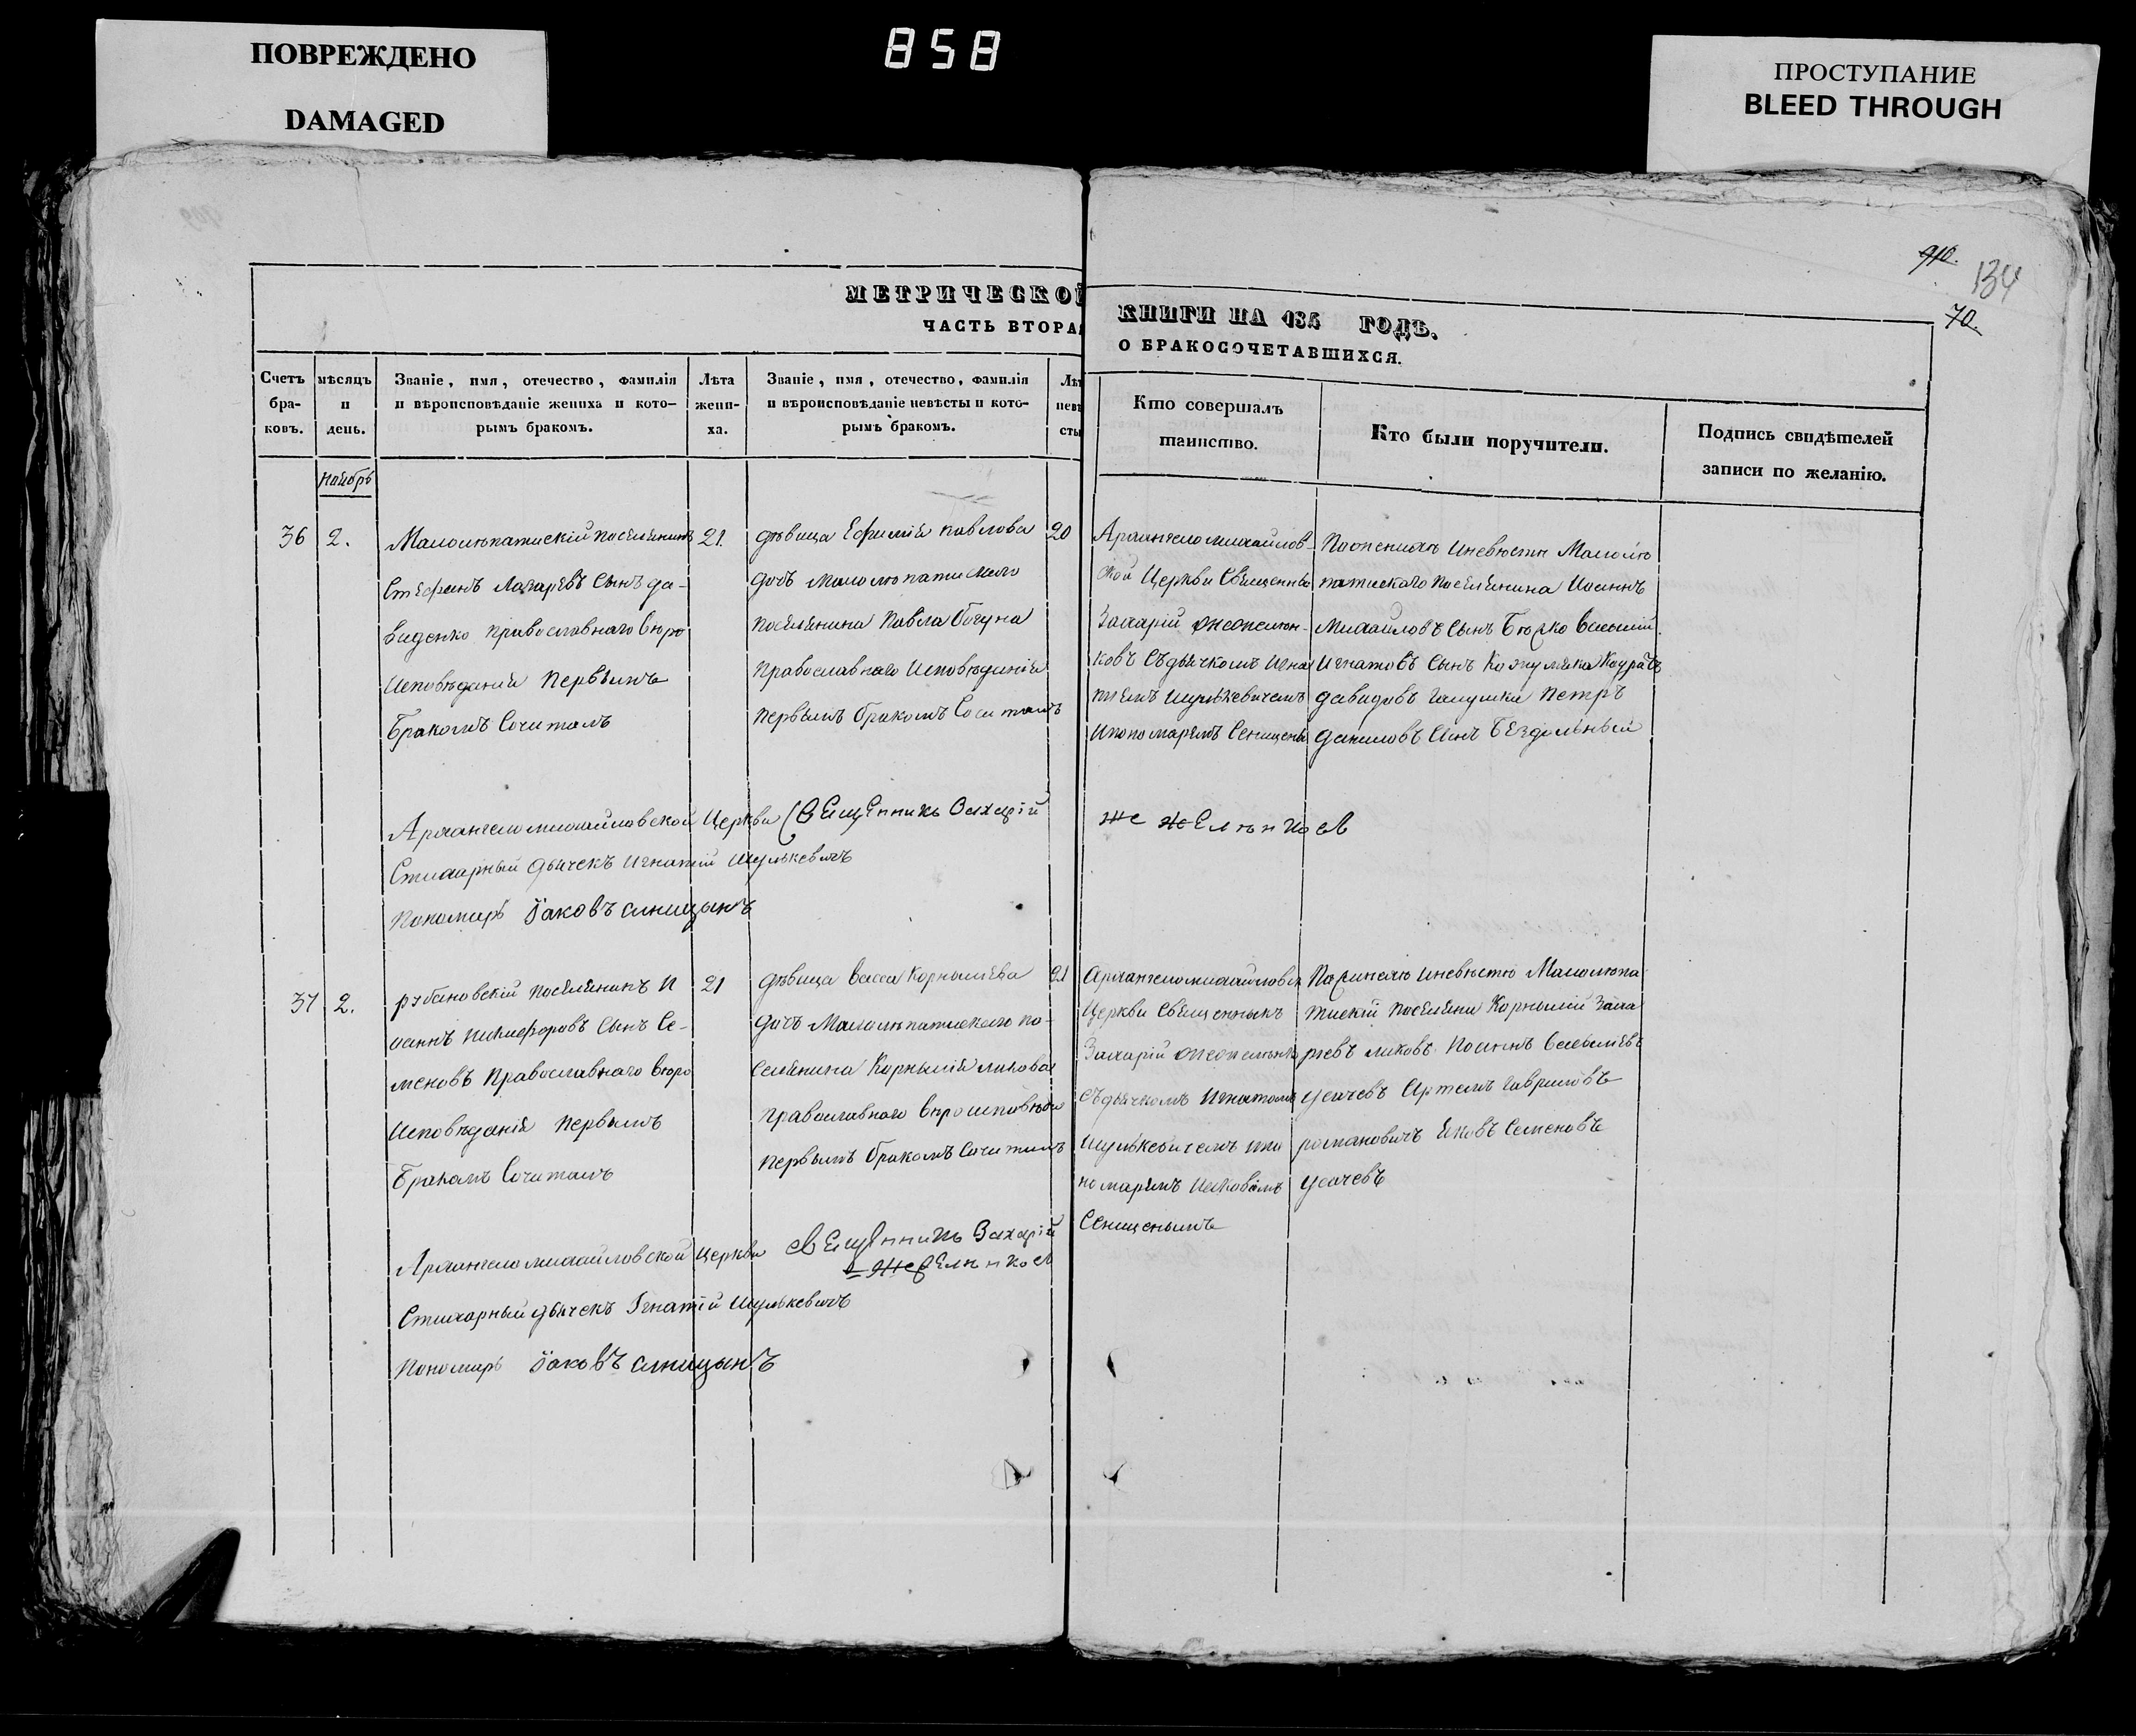 ПОВРЕЖДЕНО
DAMAGED
858
ПРОСТУПАНИЕ
BLEED THROUGH
910.
134
70.
МЕТРИЧЕСКОЙ КНИГИ НА 185 ГОДЪ.
ЧАСТЬ ВТОРАЯ О БРАКОСОЧЕТАВШИХСЯ.
Счетъ бра- ковъ.
мѣсяцъ и день.
Званіе, имя, отечество, фамилія
и вѣроисповѣданіе жениха и кото-
рымъ бракомъ.
Лѣта жени- ха.
Званіе, имя, отечество, фамилія
и вѣроисповѣданіе невѣсты и кото-
рымъ бракомъ.
Лѣт невѣ сты
Кто совершалъ
таинство.
Кто были поручители.
Подпись свидѣтелей
записи по желанію.
Ноябрь
36
2.
Малолѣпатискій поселянинъ
Стефанъ Лазаревъ Сынъ да-
виденко православнаго вѣро
исповѣданія Первымъ
Бракомъ Сочитанъ
21.
дѣвица Ефимія павлова
дочь малолѣпатискаго
поселянина Павла
Православнаго Исповѣданія
первымъ бракомъ
20
Архангеломихайлов-
ской Церкви Священни
Захарій
ковъ Съдьячкомъ Игна
тіемъ Шулькевичемъ
Ипономаремъ
Поженихѣ Иневѣсты Малолѣ
патискаго поселянина Иоаннъ
Михайловъ Сынъ Василій
Игнатовъ Сынъ Кожумяка
давидовъ Галушка Петръ
даниловъ Сынъ Бездольный
Архангеломихайловской Церкви Священникъ Захарій Жежелѣнковъ
Стихарный дьячекъ Игнатій Шулькевичъ
Пономарь Іаковъ синицынъ
37
2.
рубановскій поселянинъ И
оаннъ Никифоровъ Сынъ Се-
меновъ Православнаго вѣро
Исповѣданія Первымъ
Бракомъ Сочитанъ
21
дѣвица васса Корнылиева
дочь Малолѣпатискаго по-
селянина Корнылія
православнаго
первымъ бракомъ
21
Архангеломихайловск
Церкви Священникъ
Захарій
Съдьячкомъ Игнатомъ
Шулькевичемъ ипо
номаремъ Иаковомъ
Поженихѣ Иневѣстѣ Малолѣпа
тискій Поселяни Корнылій Заха
ріевъ Васильевъ
усачевъ Артемъ Гавриловъ
романовичъ Яковъ Семеновъ
усачевъ
Архангеломихайловской Церкви священникъ Захарій
Жежелѣнковъ
Стихарный дьячекъ Игнатій Шулькевичъ
Пономарь Іаковъ синицынъ